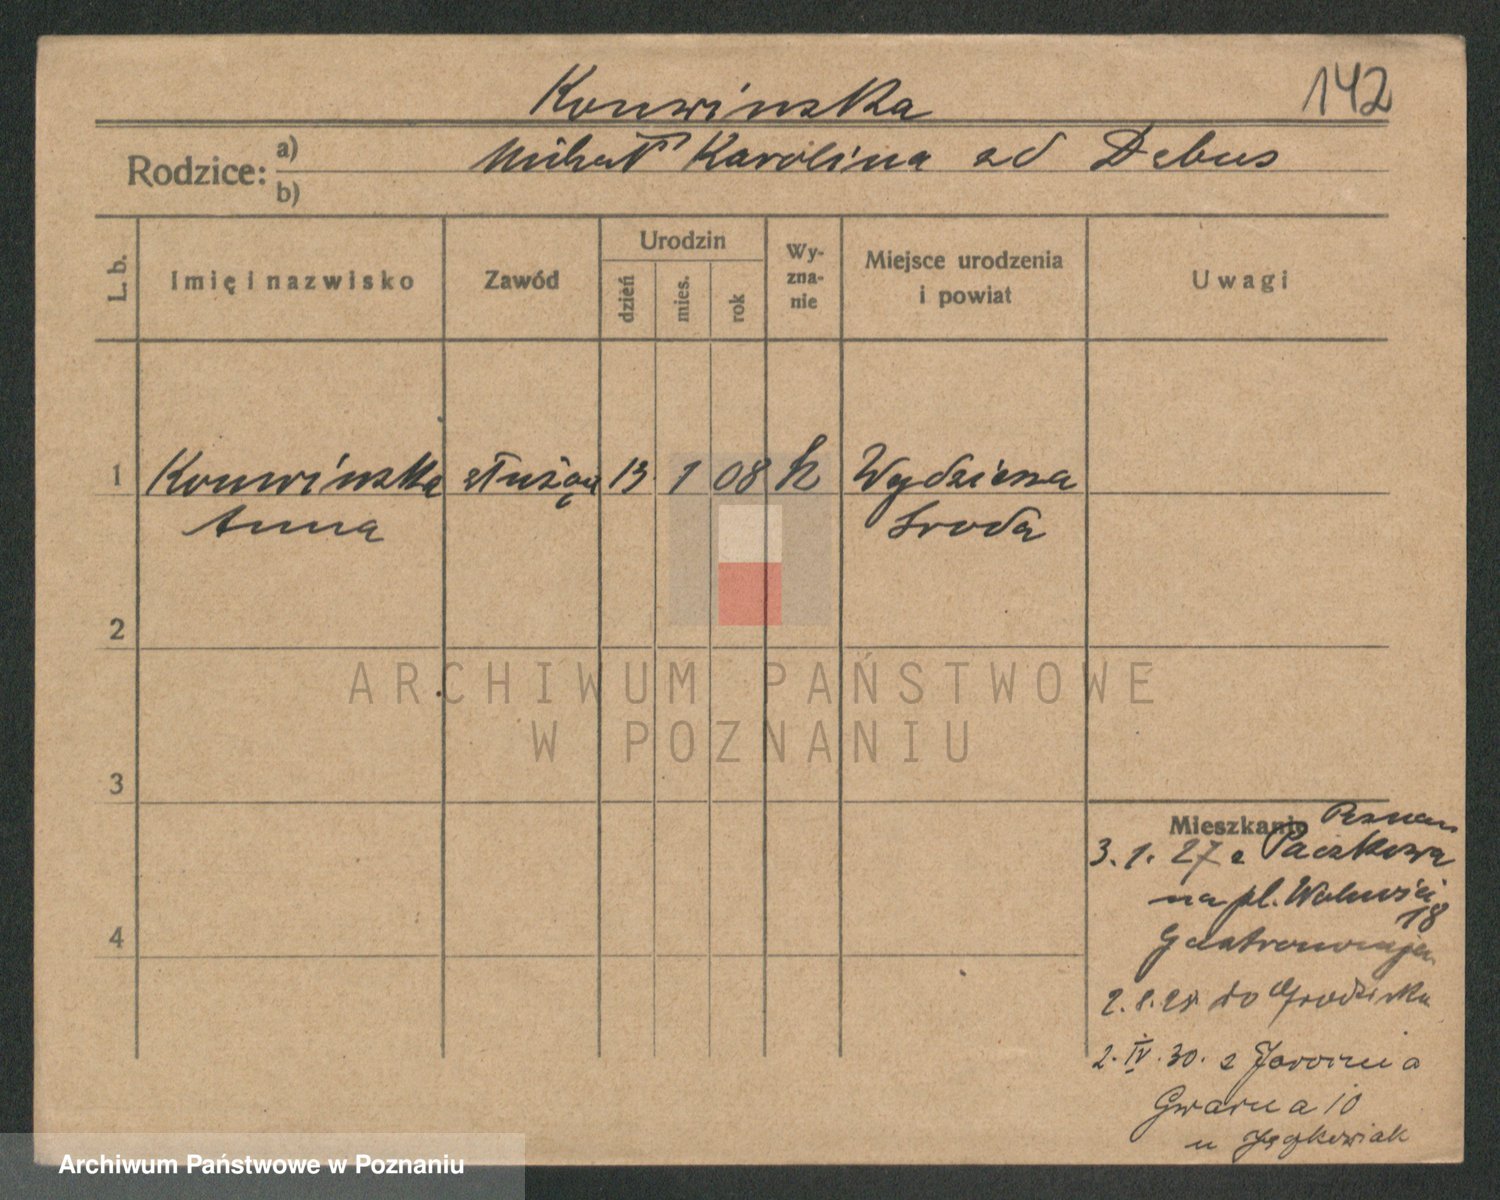 142
Konwinska
Rodzice: a) Michał Karolina zd Debus
b)
L. b. Imię i nazwisko Zawód Urodzin dzień mies. rok Wy-zna-nie Miejsce urodzenia i powiat Uwagi
1 Konwinska służąca 13 1 08 k
Anna Sroda
2
ARCHIWUM PAŃSTWOWE
W POZNANIU
3
Mieszkanie Poznan
3. 1. 27 z Paczkowa
na pl. Wolności
18
2. 8. 28. do Grodziska
2. IV. 30. z Jarocina
Gwarna 10
u
4
Archiwum Państwowe w Poznaniu